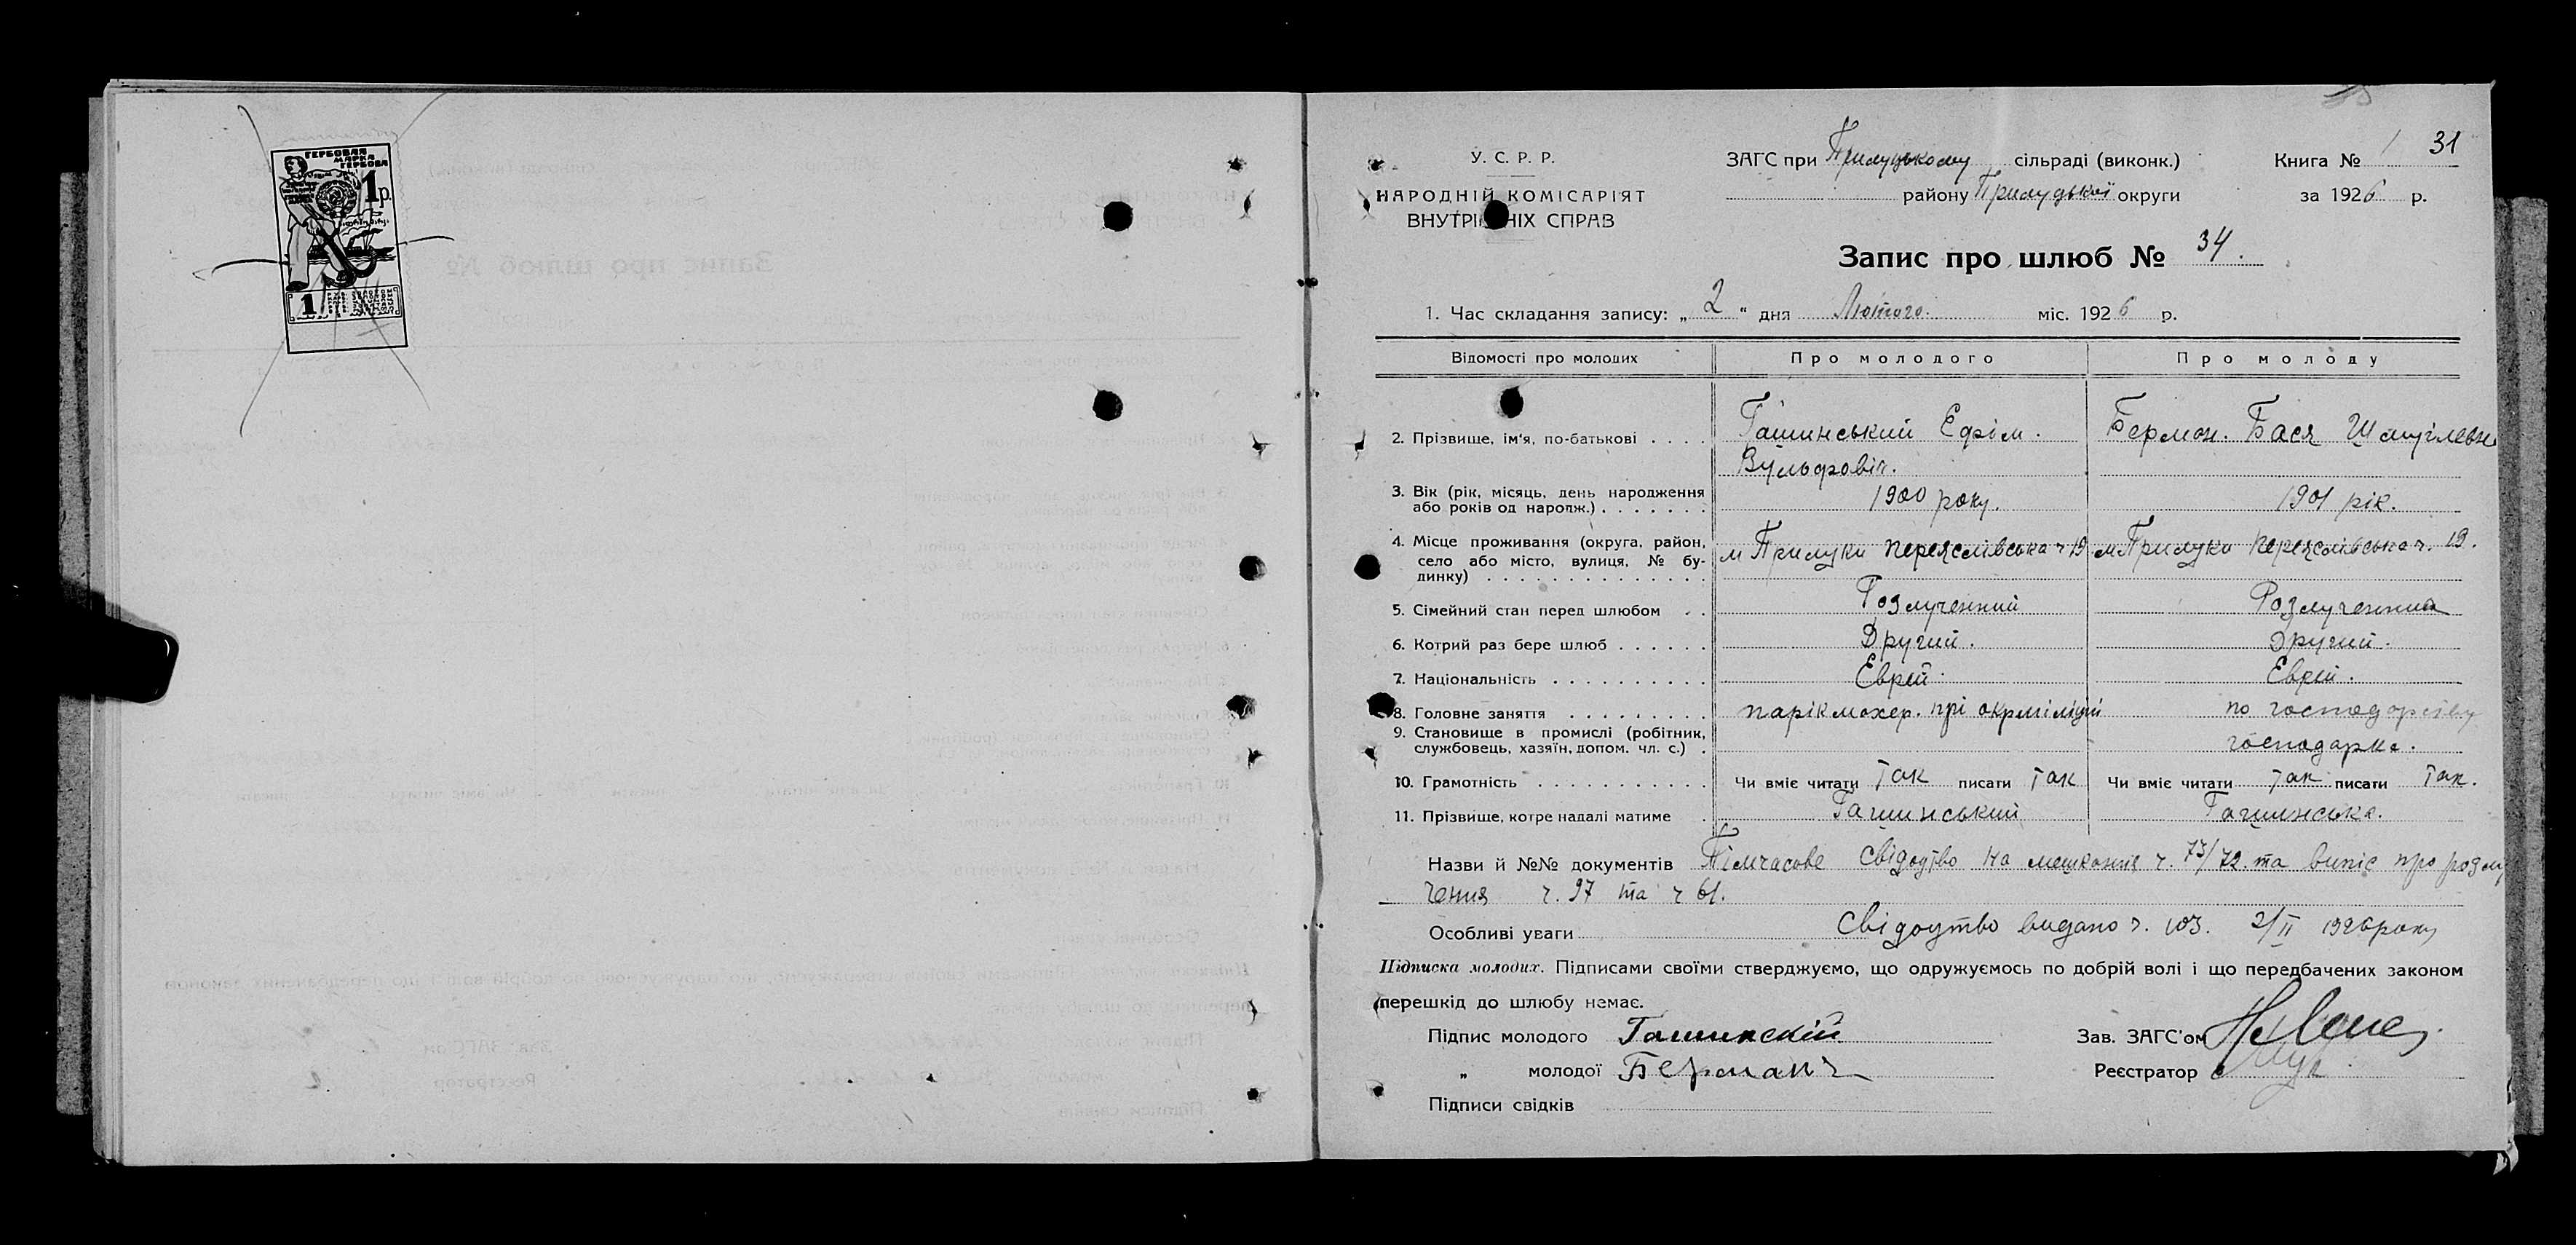 ГЕРБОВАЯ
МАРКА
ГЕРБОВА
1 р.
1
У. С. Р. Р.
НАРОДНІЙ КОМІСАРІЯТ
ВНУТРІШНІХ СПРАВ
ЗАГС при Прилуцькому сільраді (виконк.)
району Прилуцької округи
Книга № 1 31
за 1926 р.
Запис про шлюб № 34.
1. Час складання запису: „ 2 " дня Лютого міс. 1926 р.
Відомості про молодих Про молодого Про молоду
2. Прізвище, ім'я, по-батькові . . . . Гашинський Ефрім. Бермон. Бася Шмуілевн
Вульфовіч.
3. Вік (рік, місяць, день народження
або років од народж.) . . . . . . . 1900 року. 1901 рік.
4. Місце проживання (округа, район,
село або місто, вулиця, № бу-
динку) . . . . . . . . . . . . . . м Прилуки переяслівська ч 19 м Прилуки переяслівська ч. 19.
5. Сімейний стан перед шлюбом . . Розлученний Розлученна
6. Котрий раз бере шлюб . . . . . . Другий. Другий.
7. Національність . . . . . . . . . . Еврей. Еврей.
8. Головне заняття . . . . . . . . . парікмохер. прі окрміліції по господарству
9. Становище в промислі (робітник,
службовець, хазяїн, допом. чл. с.) . господарка.
10. Грамотність . . . . . . . . . . . Чи вміє читати так писати так Чи вміє читати так писати так.
11. Прізвище, котре надалі матиме . Гашинський Гашинська.
Назви й №№ документів Тімчасове свідоцтво на мешкання ч. 73/72. та випіс про розлу
чення ч. 97 та ч 61.
Особливі уваги свідоцтво видано ч. 103. 2/II 1926 року
Підписка молодих. Підписами своїми стверджуємо, що одружуємось по добрій волі і що передбачених законом
перешкід до шлюбу немає.
Підпис молодого Гашинскій Зав. ЗАГС'ом
„ молодої Берман Реєстратор
Підписи свідків